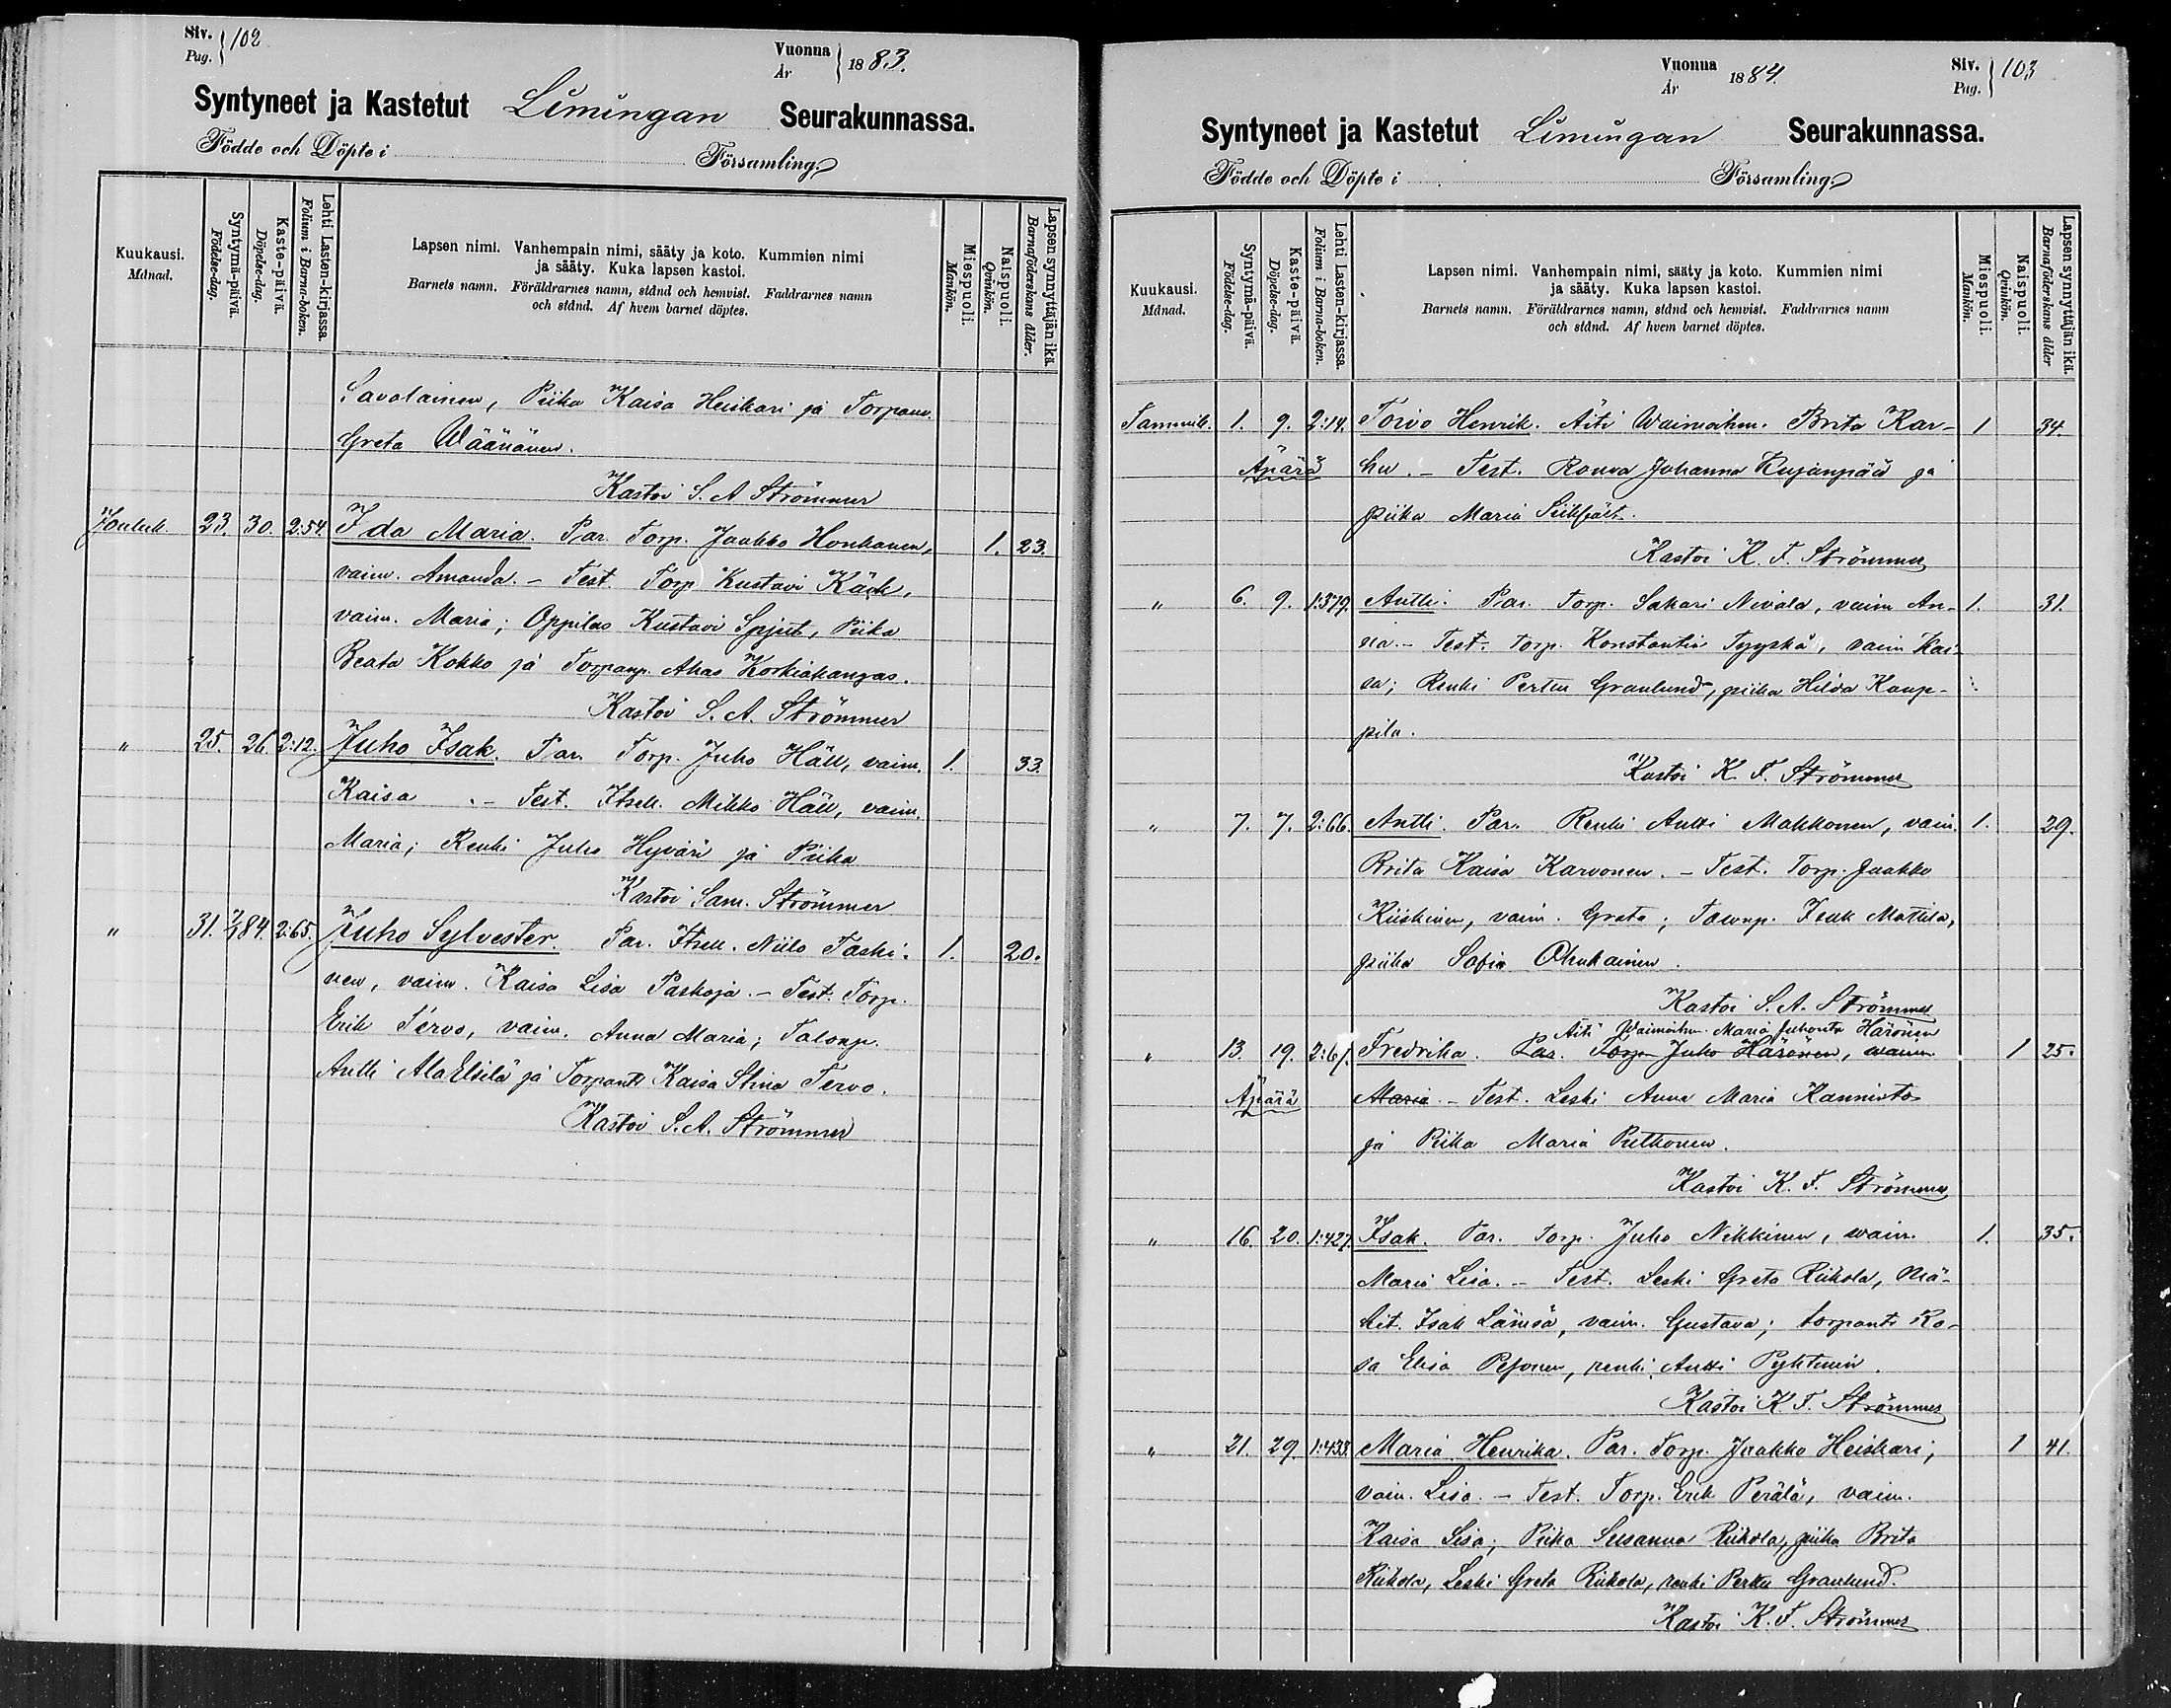 Siv. } 102
Pag.
Vuonna } 1883.
År
Syntyneet ja Kastetut Limingan Seurakunnassa.
Födde och Döpte i Församling
Kuukausi. Månad.
Syntymä-päivä. Födelse-dag.
Kaste-päivä. Döpelse-dag.
Lehti Lasten-kirjassa. Folium i Barna-boken.
Lapsen nimi. Vanhempain nimi, sääty ja koto. Kummien nimi
ja sääty. Kuka lapsen kastoi.
Barnets namn. Föräldrarnes namn, stånd och hemvist. Faddrarnes namn
och stånd. Af hvem barnet döptes.
Miespuoli. Mankön.
Naispuoli. Qvinkön.
Lapsen synnyttäjän ikä. Barnaföderskans ålder.
Savolainen, Piika Kaisa Heiskari ja Torpanv.
Greta Väänänen.
Kastoi S. A Strömmer
Jouluk. 23. 30. 2:54. Ida Maria. Par. Torp. Jaakko Honkanen, 1. 23.
vaim. Amanda. - Test. Torp Kustavi Käck,
vaim. Maria; Oppilas Kustavi Spjut, Piika
Beata Kokko ja Torpanp. Akas Korkiakangas.
Kastoi S. A. Strömmer
" 25. 26. 2:12. Juho Isak. Par. Torp. Juho Häll, vaim. 1. 33.
Kaisa . - Test. Itsell. Mikko Häll, vaim.
Maria; Renki Juho Hyväri ja Piika
Kastoi Sam. Strömmer
" 31. 84. 2:65. Juho Sylvester. Par. Itsell. Niilo Taski- 1. 20.
nen, vaim. Kaisa Lisa Paskoja. - Test. Torp.
Erik Tervo, vaim. Anna Maria; Talonp.
Antti AlaElsilä ja Torpantt Kaisa Stina Tervo.
Kastoi S. A. Strömmer
Vuonna 1884.
År
Siv. } 103
Pag.
Syntyneet ja Kastetut Limingan Seurakunnassa.
Födde och Döpte i Församling
Kuukausi. Månad.
Syntymä-päivä. Födelse-dag.
Kaste-päivä. Döpelse-dag.
Lehti Lasten-kirjassa. Folium i Barna-boken.
Lapsen nimi. Vanhempain nimi, sääty ja koto. Kummien nimi
ja sääty. Kuka lapsen kastoi.
Barnets namn. Föräldrarnes namn, stånd och hemvist. Faddrarnes namn
och stånd. Af hvem barnet döptes.
Miespuoli. Mankön.
Naispuoli. Qvinkön.
Lapsen synnyttäjän ikä. Barnaföderskans ålder
Tammik. 1. 9. 2:14. Toivo Henrik. Äiti Waimoihm. Brita Kar- 1 34.
Äpärä hu. - Test. Rouva Johanna Kujanpää ja
piika Maria
Kastoi K. F. Strömmer
" 6. 9. 1:379. Antti. Par. Torp. Sakari Nivala, vaim An- 1. 31.
na. - Test. Torp. Konstantin Tyyskä, vaim Kai-
sa; Renki Perttu Granlund, piika Hilda Kaup-
pila.
Kastoi K. F. Strömmer
" 7. 7. 2:66. Antti. Par. Renki Antti Makkonen, vaim 1. 29.
Brita Kaisa Karvonen. - Test. Torp. Jaakko
Kiiskinen, vaim. Greta; Talonp. Isak Mattila,
piika Sofia Ohukainen.
Kastoi S. A. Strömmer
Äiti Waimoihm. Maria Juhontr Härönen
" 13. 19. 2:61. Fredrika. Par. Torp Juho Härönen, vaim 1 25.
Äpärä Maria. - Test. Leski Anna Maria Kannisto
ja Piika Maria Putkonen.
Kastoi K. F. Strömmer
" 16. 20. 1:427. Isak. Par. Torp. Juho Nikkinen, vaim. 1. 35.
Maria Lisa. - Test. Leski Greta Riikola, Mä-
kit. Isak Länsä, vaim. Gustava; torpantr Ro-
sa Elisa Pesonen, renki Antti
Kastoi K. F. Strömmer
" 21. 29. 1:433. Maria Henrika. Par. Torp. Jaakko Heiskari, 1 41.
vaim. Lisa. - Test. Torp. Erik Perälä, vaim.
Kaisa Lisa; Piika Susanna Riikola, piika Brita
Riikola, Leski Greta Riikola, renki Perttu Granlund.
Kastoi K. F. Strömmer